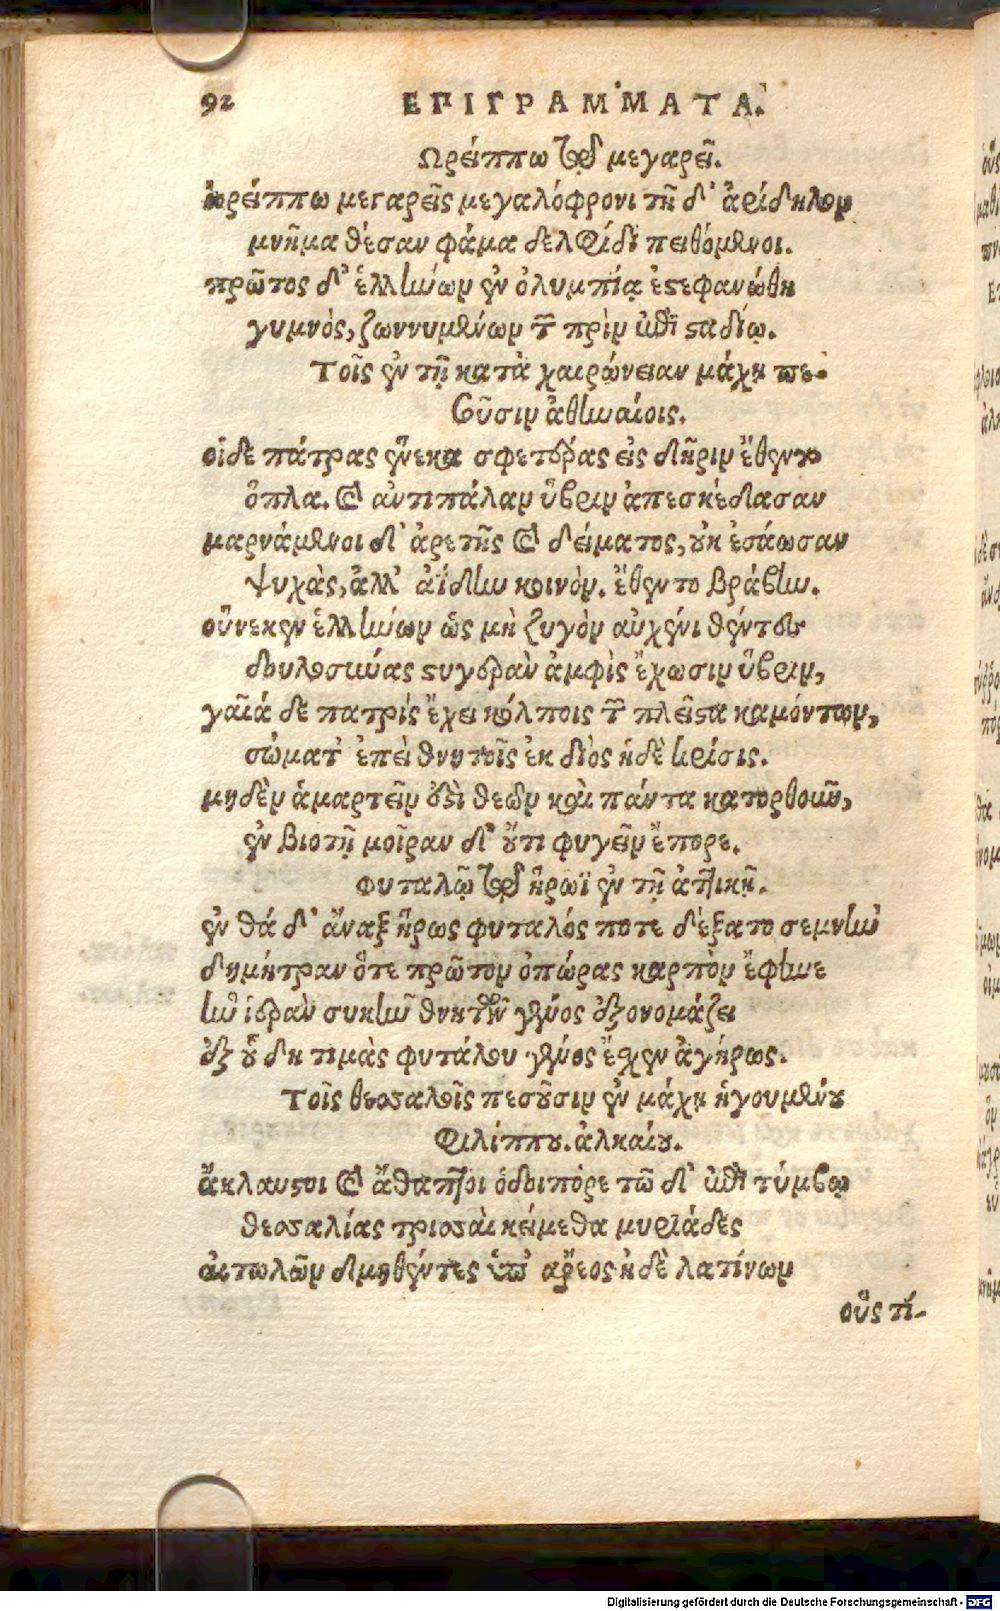 92 ΕΠΙΓΡΑΜΜΑΤΑ.
Ωρείππω τῷ μεγαρεῖ.
ὠρείππω μεγαρεῖς μεγαλόφρονι τῇ δ' ἀρίδηλον
μνῆμα θέσαν φάμα δελφίδι πειθόμενοι.
πρῶτος δ' ἑλλήνων ἐν ὀλυμπίᾳ ἐστεφανώθη
γυμνὸς, ζωννυμένων τῶν πρὶν ἐπὶ σταδίῳ.
Τοῖς ἐν τῇ κατὰ χαιρώνειαν μάχῃ πε-
σοῦσιν ἀθηναίοις.
οἵδε πάτρας ἕνεκα σφετέρας εἰς δῆριν ἔθεντο
ὅπλα. καὶ ἀντιπάλων ὕβριν ἀπεσκέδασαν
μαρνάμενοι δ' ἀρετῆς καὶ δείματος, οὐκ ἐσάωσαν
ψυχὰς, ἀλλ' ἀΐδην κοινὸν. ἔθεντο βράβην.
οὕνεκεν ἑλλήνων ὡς μὴ ζυγὸν αὐχένι θέντες
δουλοσύνας στυγερὰν ἀμφὶς ἔχωσιν ὕβριν,
γαῖά δὲ πατρίς ἔχει κόλποις τῶν πλεῖστα καμόντων,
σώματ' ἐπεὶ θνητοῖς ἐκ διὸς ἡδὲ κρίσις.
μηδὲν ἁμαρτεῖν ἐστὶ θεῶν καὶ πάντα κατορθοῦν,
ἐν βιοτῇ μοῖραν δ' οὔτι φυγεῖν ἔπορε.
Φυταλῷ τῷ ἥρωϊ ἐν τῇ ἀττικῇ.
ἐν θά δ' ἄναξ ἥρως φυταλός ποτε δέξατο σεμνὴν
δημήτραν ὅτε πρῶτον ὀπώρας καρπὸν ἔφηνε
ἣν ἱερὰν συκῆν θνητῶν γένος ἐξονομάζει
ἐξ οὗ δη τιμὰς φυτάλου γένος ἔσχεν ἀγήρως.
Τοῖς θεσσαλοῖς πεσοῦσιν ἐν μάχῃ ἡγουμένου
φιλίππου. ἀλκαίου.
ἄκλαυστοι καὶ ἄθαπτοι ὁδοιπόρε τῶ δ' ἐπὶ τύμβῳ
θεσσαλίας τρισσαὶ κείμεθα μυριάδες
αἰτωλῶν δμηθέντες ὑπ' ἄρεος ἠδὲ λατίνων
οὓς τί-
Digitalisierung gefördert durch die Deutsche Forschungsgemeinschaft - DFG